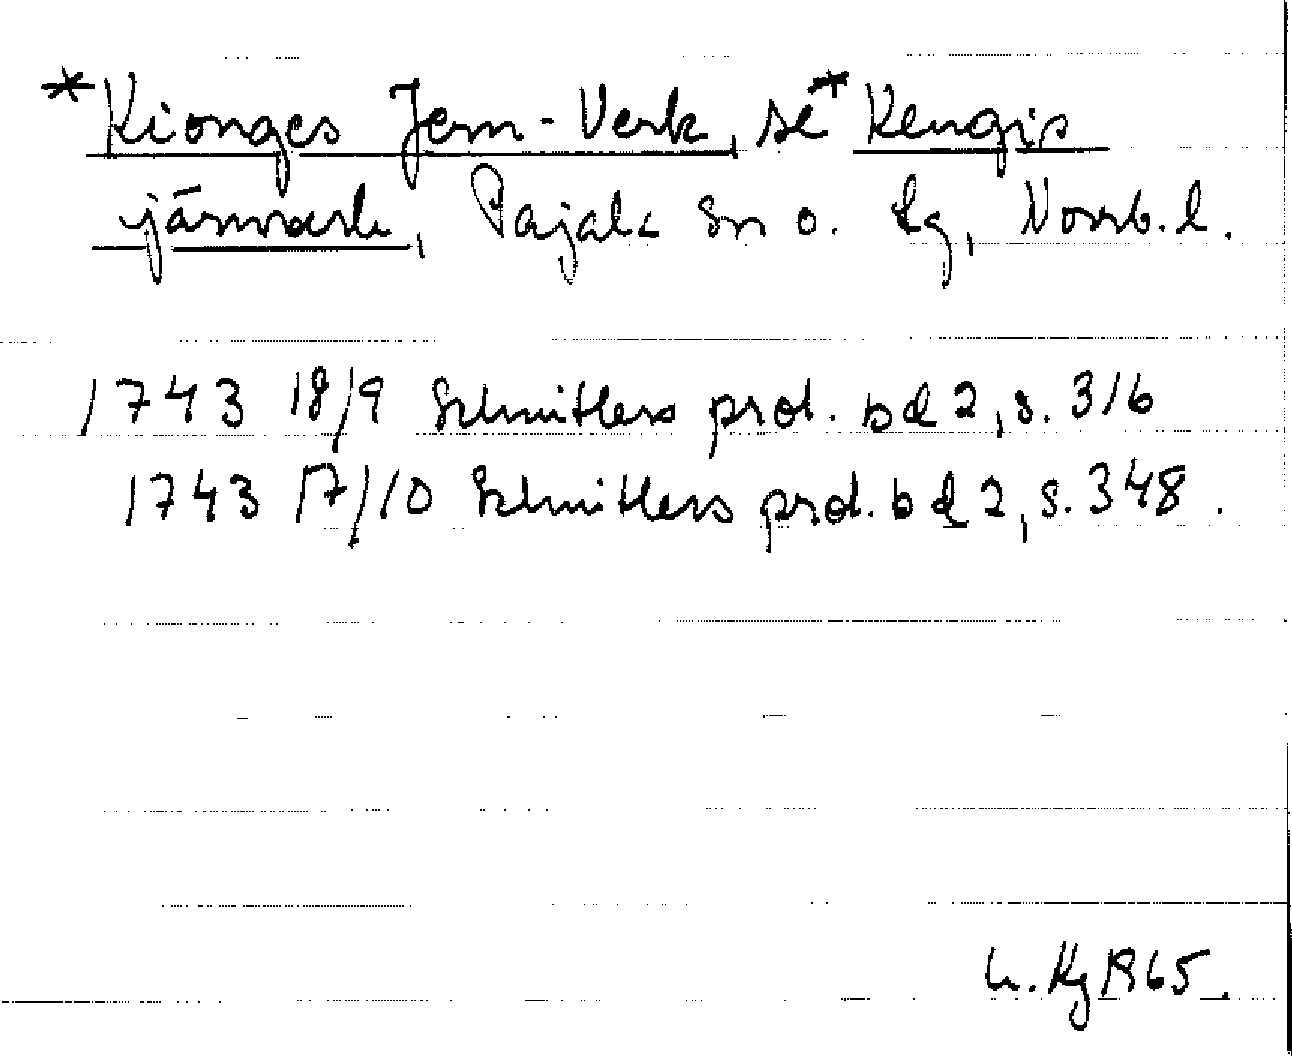 *Kionges Jern-Verk, se *Kengis
järnverk, Pajala sn o. tg, Norrb. l.
1743 18/9 Schnitlers prot. bd 2, s. 316
1743 17/10 Schnitlers prot. bd 2, s. 348.
Kg 1965.